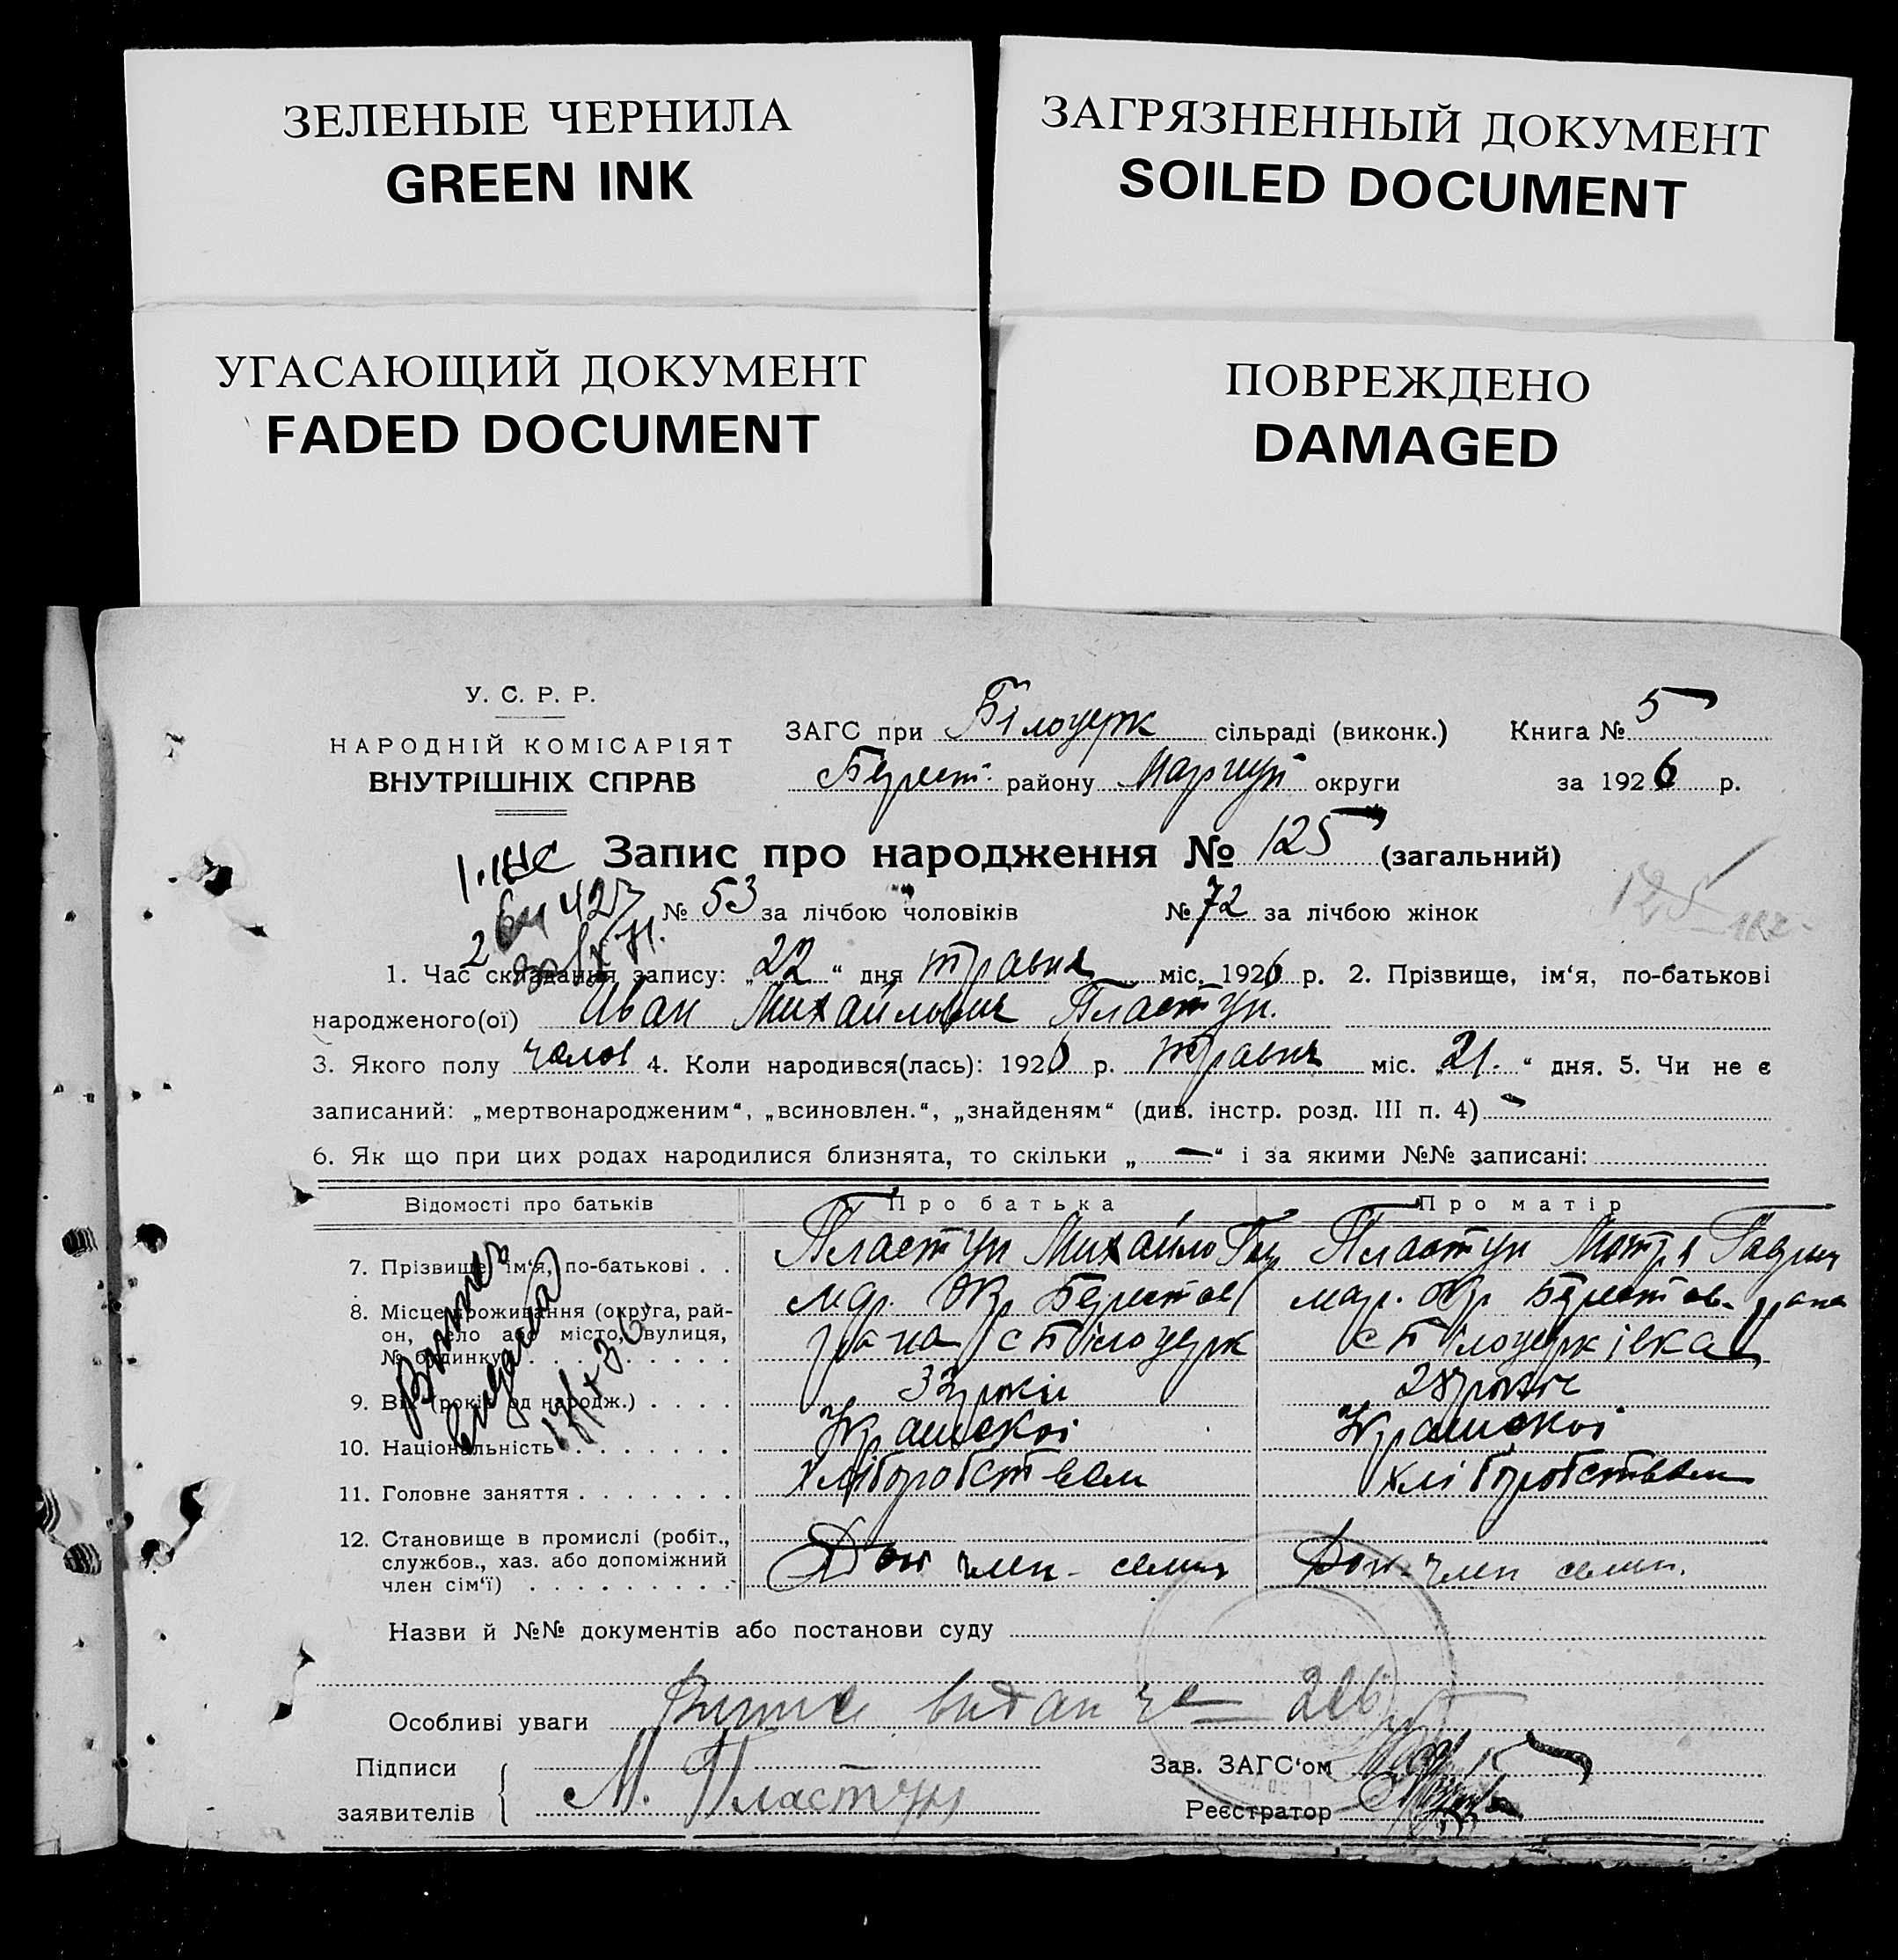 ЗЕЛЕНЫЕ ЧЕРНИЛА
GREEN INK
ЗАГРЯЗНЕННЫЙ ДОКУМЕНТ
SOILED DOCUMENT
УГАСАЮЩИЙ ДОКУМЕНТ
FADED DOCUMENT
ПОВРЕЖДЕНО
DAMAGED
У. С. Р. Р.
НАРОДНІЙ КОМІСАРІЯТ
ВНУТРІШНІХ СПРАВ
ЗАГС при Білоцерк сільраді (виконк.) Книга № 5
Берест. району Маріуп округи за 1926 р.
Запис про народження № 125 (загальний)
№ 53 за лічбою чоловіків № 72 за лічбою жінок
125
1. Час складання запису: „22“ дня травня міс. 1926 р. 2. Прізвище, ім‘я, по-батькові
народженого(ої) Иван Михайлович Пластун.
3. Якого полу чолов 4. Коли народився(лась): 1926 р. травня міс. „21.“ дня. 5. Чи не є
записаний: „мертвонародженим“, „всиновлен.“, „знайденям“ (див. інстр. розд. III п. 4) -
6. Як що при цих родах народилися близнята, то скільки „—“ і за якими №№ записані:
Відомості про батьків Про батька Про матір
7. Прізвище, ім‘я, по-батькові . . Пластун Михайло Пластун Мотря
8. Місце проживання (округа, рай-
он, село або місто, вулиця,
№ будинку)
Мар. Окр Берестов
рона с Білоцерк
мар. Окр Берестов. рона
с Білоцерківка
9. Вік (років од народж.) . . . . 32 роки
10. Національність . . . . . . . Украинскоі Украинскоі
11. Головне заняття . . . . . . . хліборобством хліборобством
12. Становище в промислі (робіт.,
службов., хаз. або допоміжний
член сім‘ї) . . . . . . . . .
Доп член семьи Доп. член семьи.
Назви й №№ документів або постанови суду
Особливі уваги
Підписи
заявителів
М. Пластун
Зав. ЗАГС‘ом
Реєстратор